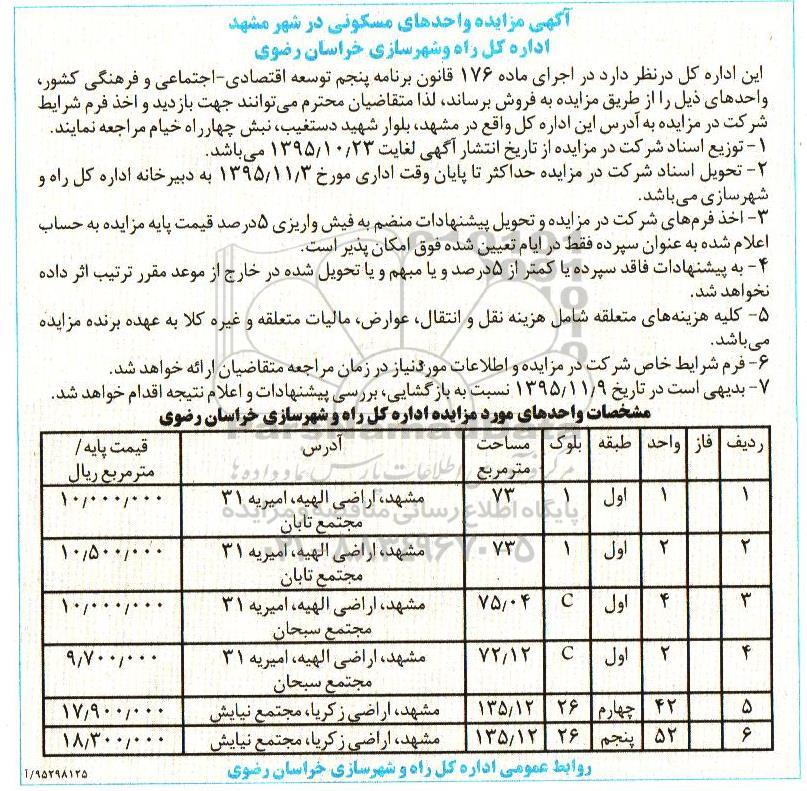 آگهی مزایده واحدهای مسکونی در شهر مشهد
اداره کل راه وشهرسازی خراسان رضوی
این اداره کل درنظر دارد در اجرای ماده ۱۷۶ قانون برنامه پنجم توسعه اقتصادی-اجتماعی و فرهنگی کشور،
واحدهای ذیل را از طریق مزایده به فروش برساند، لذا متقاضیان محترم می‌توانند جهت بازدید و اخذ فرم شرایط
شرکت در مزایده به آدرس این اداره کل واقع در مشهد، بلوار شهید دستغیب، نبش چهارراه خیام مراجعه نمایند.
۱- توزیع اسناد شرکت در مزایده از تاریخ انتشار آگهی لغایت ۱۳۹۵/۱۰/۲۳ می‌باشد.
۲- تحویل اسناد شرکت در مزایده حداکثر تا پایان وقت اداری مورخ ۱۳۹۵/۱۱/۳ به دبیرخانه اداره کل راه و
شهرسازی می‌باشد.
۳- اخذ فرم‌های شرکت در مزایده و تحویل پیشنهادات منضم به فیش واریزی ۵درصد قیمت پایه مزایده به حساب
اعلام شده به عنوان سپرده فقط در ایام تعیین شده فوق امکان پذیر است.
۴- به پیشنهادات فاقد سپرده یا کمتر از ۵درصد و یا مبهم و یا تحویل شده در خارج از موعد مقرر ترتیب اثر داده
نخواهد شد.
۵- کلیه هزینه‌های متعلقه شامل هزینه نقل و انتقال، عوارض، مالیات متعلقه و غیره کلا به عهده برنده مزایده
می‌باشد.
۶- فرم شرایط خاص شرکت در مزایده و اطلاعات موردنیاز در زمان مراجعه متقاضیان ارائه خواهد شد.
۷- بدیهی است در تاریخ ۱۳۹۵/۱۱/۹ نسبت به بازگشایی، بررسی پیشنهادات و اعلام نتیجه اقدام خواهد شد.
مشخصات واحدهای مورد مزایده اداره کل راه و شهرسازی خراسان رضوی
ردیف فاز واحد طبقه بلوک مساحت مترمربع آدرس قیمت پایه/ مترمربع ریال
۱ ۱ اول ۱ ۷۳ مشهد، اراضی الهیه، امیریه ۳۱ مجتمع تابان ۱۰/۰۰۰/۰۰۰
۲ ۲ اول ۱ ۷۳ مشهد، اراضی الهیه، امیریه ۳۱ مجتمع تابان ۱۰/۵۰۰/۰۰۰
۳ ۴ اول C ۷۵/۰۴ مشهد، اراضی الهیه، امیریه ۳۱ مجتمع سبحان ۱۰/۰۰۰/۰۰۰
۴ ۲ اول C ۷۲/۱۲ مشهد، اراضی الهیه، امیریه ۳۱ مجتمع سبحان ۹/۷۰۰/۰۰۰
۵ ۴۲ چهارم ۲۶ ۱۳۵/۱۲ مشهد، اراضی زکریا، مجتمع نیایش ۱۷/۹۰۰/۰۰۰
۶ ۵۲ پنجم ۲۶ ۱۳۵/۱۲ مشهد، اراضی زکریا، مجتمع نیایش ۱۸/۳۰۰/۰۰۰
روابط عمومی اداره کل راه و شهرسازی خراسان رضوی
۹۵۲۹۸۱۲۵/آ
ParsNamadData
پایگاه اطلاع رسانی مناقصه و مزایده